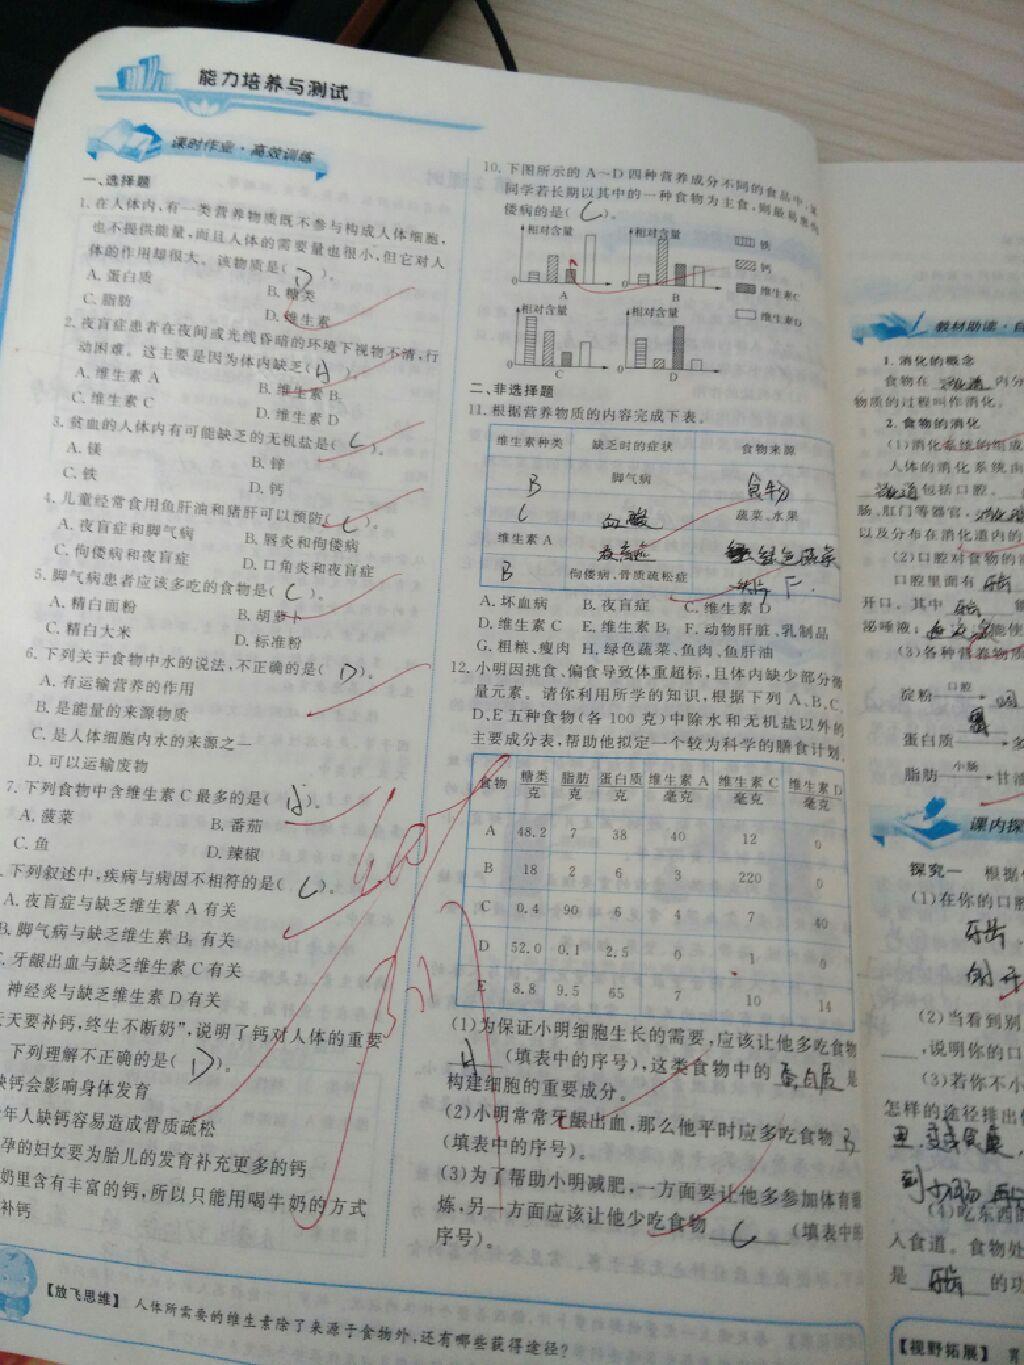 能力培养与测试
课时作业·高效训练
一、选择题
1.在人体内,有一类营养物质既不参与构成人体细胞,
也不提供能量,而且人体的需要量也很小,但它对人
体的作用却很大。该物质是( D )。
A.蛋白质 B.糖类
C.脂肪 D.维生素
2.夜盲症患者在夜间或光线昏暗的环境下视物不清,行
动困难。这主要是因为体内缺乏( A )。
A.维生素 A B.维生素 B₁
C.维生素 C D.维生素 D
3.贫血的人体内有可能缺乏的无机盐是( C )。
A.镁 B.锌
C.铁 D.钙
4.儿童经常食用鱼肝油和猪肝可以预防( C )。
A.夜盲症和脚气病 B.唇炎和佝偻病
C.佝偻病和夜盲症 D.口角炎和夜盲症
5.脚气病患者应该多吃的食物是( C )。
A.精白面粉 B.胡萝卜
C.精白大米 D.标准粉
6.下列关于食物中水的说法,不正确的是( D )。
A.有运输营养的作用
B.是能量的来源物质
C.是人体细胞内水的来源之一
D.可以运输废物
7.下列食物中含维生素 C 最多的是( )。
A.菠菜 B.番茄
C.鱼 D.辣椒
下列叙述中,疾病与病因不相符的是( C )。
A.夜盲症与缺乏维生素 A 有关
B.脚气病与缺乏维生素 B₁ 有关
牙龈出血与缺乏维生素 C 有关
神经炎与缺乏维生素 D 有关
天要补钙,终生不断奶”,说明了钙对人体的重要
下列理解不正确的是( D )。
钙会影响身体发育
年人缺钙容易造成骨质疏松
孕的妇女要为胎儿的发育补充更多的钙
奶里含有丰富的钙,所以只能用喝牛奶的方式
补钙
10.下图所示的 A～D 四种营养成分不同的食品中,
同学若长期以其中的一种食物为主食,则最易患
偻病的是( C )。
相对含量 相对含量 铁
钙
0 A 0 B 维生素C
相对含量 相对含量 维生素D
0 C 0 D
二、非选择题
11.根据营养物质的内容完成下表。
维生素种类 缺乏时的症状 食物来源
B 脚气病 食物
C 血酸 蔬菜、水果
维生素 A 夜盲症 绿色蔬菜
B 佝偻病、骨质疏松症 F
A.坏血病 B.夜盲症 C.维生素 D
D.维生素 C E.维生素 B₁ F.动物肝脏、乳制品
G.粗粮、瘦肉 H.绿色蔬菜、鱼肉、鱼肝油
12.小明因挑食、偏食导致体重超标,且体内缺少部分微
量元素。请你利用所学的知识,根据下列 A、B、C、
D、E 五种食物(各 100 克)中除水和无机盐以外的
主要成分表,帮助他拟定一个较为科学的膳食计划。
食物 糖类/克 脂肪/克 蛋白质/克 维生素 A/毫克 维生素 C/毫克 维生素 D/毫克
A 48.2 7 38 40 12 0
B 18 2 6 3 220 0
C 0.4 90 6 4 7 40
D 52.0 0.1 2.5 0 1 0
E 8.8 9.5 65 7 10 14
(1)为保证小明细胞生长的需要,应该让他多吃食物
A (填表中的序号),这类食物中的 蛋白质 是
构建细胞的重要成分。
(2)小明常常牙龈出血,那么他平时应多吃食物 B
(填表中的序号)。
(3)为了帮助小明减肥,一方面要让他多参加体育锻
炼,另一方面应该让他少吃食物 C (填表中的
序号)。
【放飞思维】 人体所需要的维生素除了来源于食物外,还有哪些获得途径?
教材助读·自
1.消化的概念
食物在 消化道 内分
物质的过程叫作消化。
2.食物的消化
(1)消化系统的组成
人体的消化系统由
消化道 包括口腔、
肠、肛门等器官,消化腺
以及分布在消化道内的
(2)口腔对食物的
口腔里面有 牙齿
开口。其中 牙齿 能
泌唾液; 能使
(3)各种营养物质
淀粉 口腔
蛋白质
脂肪 小肠 甘油
课内探
探究一 根据
(1)在你的口腔
牙齿
(2)当看到别
,说明你的口
(3)若你不小
怎样的途径排出
到小肠
(4)吃东西的
入食道。食物处
是 牙齿 的功
【视野拓展】